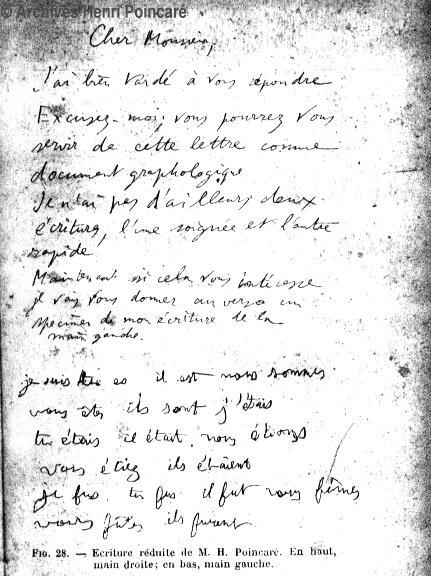 © Archives Henri Poincaré
Cher Monsieur,
J'ai bien tardé à vous répondre
Excusez-moi; vous pourrez vous
servir de cette lettre comme
document graphologique
Je n'ai pas d'ailleurs deux
écritures, l'une soignée et l'autre
rapide
Maintenant si cela vous intéresse
je vais vous donner au verso un
specimen de mon écriture de la
main gauche.
je suis tu es il est nous sommes
vous êtes ils sont j'étais
tu étais il était nous étions
vous étiez ils étaient
je fus tu fus il fut nous fûmes
vous fûtes ils furent
FIG. 28. — Ecriture réduite de M. H. Poincaré. En haut,
main droite; en bas, main gauche.